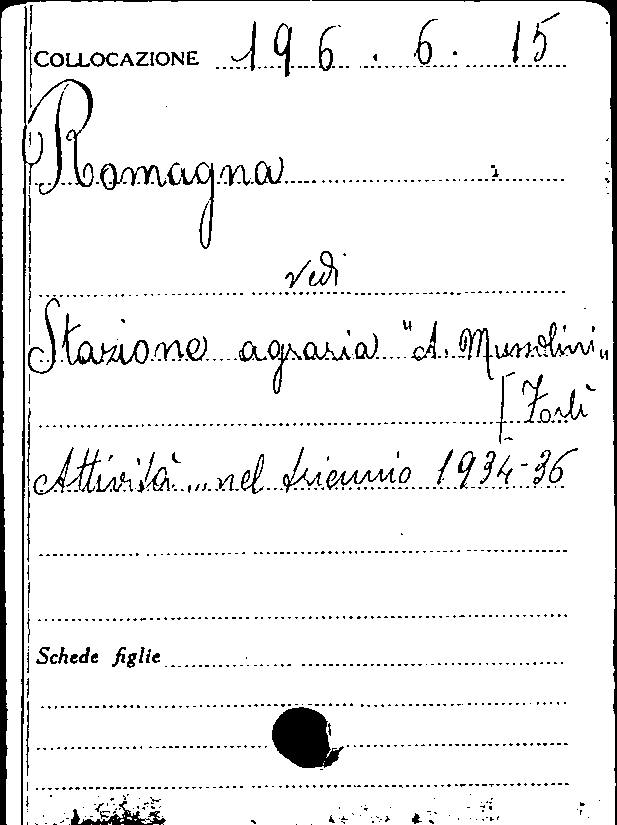 COLLOCAZIONE 196.6.15
Romagna
vedi
Stazione agraria "A. Mussolini"
[Forlì
Attività ... nel triennio 1934-36
Schede figlie